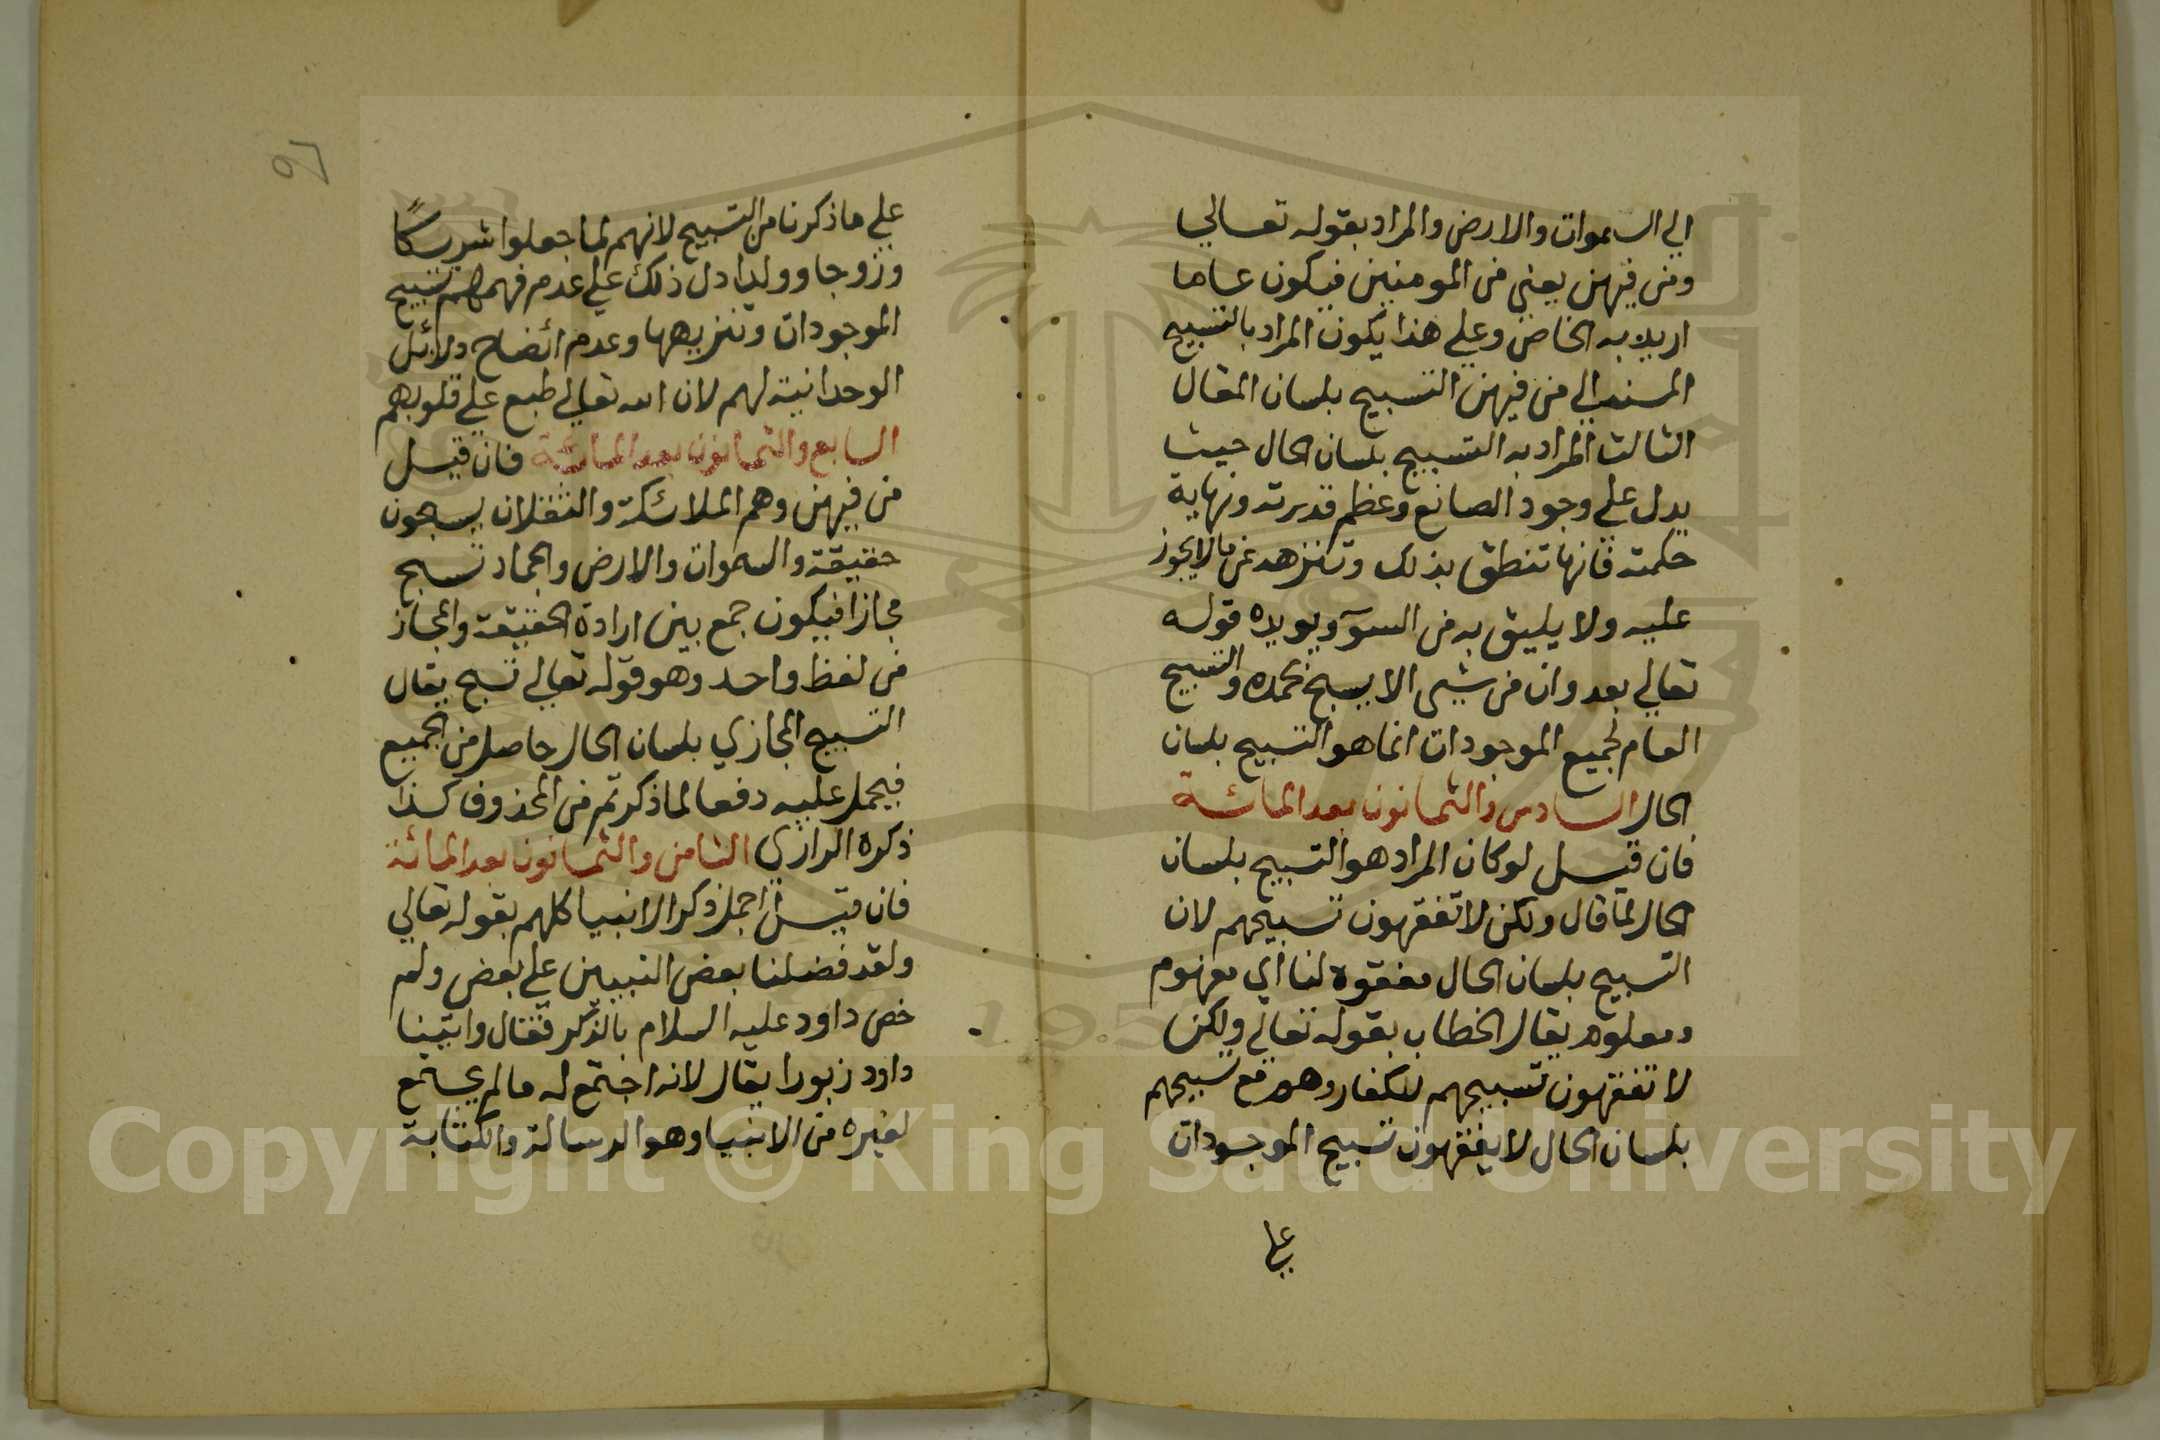 الي السموات والارض والمراد بقوله تعالي
ومن فيهن يعني من المومنين فيكون عاما
اريد به الخاص وعلي هذا يكون المراد بالتسبيح
المسند الي من فيهن التسبيح بلسان المقال
الثالث المراد به التسبيح بلسان الحال حيث
يدل علي وجود الصانع وعظم قدرته ونهاية
حكمته فانها تنطق بذلك وتنزهه عن ما لا يجوز
عليه ولا يليق به من السوء ويويده قوله
تعالي بعد وان من شيى الا يسبح بحمده والتسبيح
العام لجميع الموجودات انما هو التسبيح بلسان
الحال السادس والثمانون بعد المائة
فان قيل لو كان المراد هو التسبيح بلسان
الحال لما قال ولكن لا تفقهون تسبيحهم لان
التسبيح بلسان الحال مفقوه لنا اي مفهوم
ومعلوم يقال الخطاب بقوله تعالي ولكن
لا تفقهون تسبيحهم للكفار وهم مع تسبيحهم
بلسان الحال لا يفقهون تسبيح الموجودات
علي
علي ما ذكرنا من التسبيح لانهم لما جعلوا شريكًا
وزوجا وولدا دل ذلك علي عدم فهمهم تسبيح
الموجودات وتنزيهها وعدم ائضاح دلائل
الوحدانية لهم لان الله تعالي طبع علي قلوبهم
السابع والثمانون بعد المائة فان قيل
من فيهن وهم الملائكة والثقلان يسبحون
حقيقة والسموات والارض والجماد تسبح
مجازا فيكون جمع بين ارادة الحقيقة والمجاز
من لفظ واحد وهو قوله تعالي تسبح يقال
التسبيح المجازي بلسان الحال حاصل من الجميع
فيحمل عليه دفعا لما ذكرتم من المحذوف كذا
ذكره الرازي الثامن والثمانون بعد المائة
فان قيل اجمل ذكر الانبيا كلهم بقوله تعالي
ولقد فضلنا بعض النبيين علي بعض ولم
خص داود عليه السلام بالذكر فقال واتينا
داود زبورا يقال لانه اجتمع له ما لم يجتمع
لغيره من الانبيا وهو الرسالة والكتابة
Copyright © King Saud University